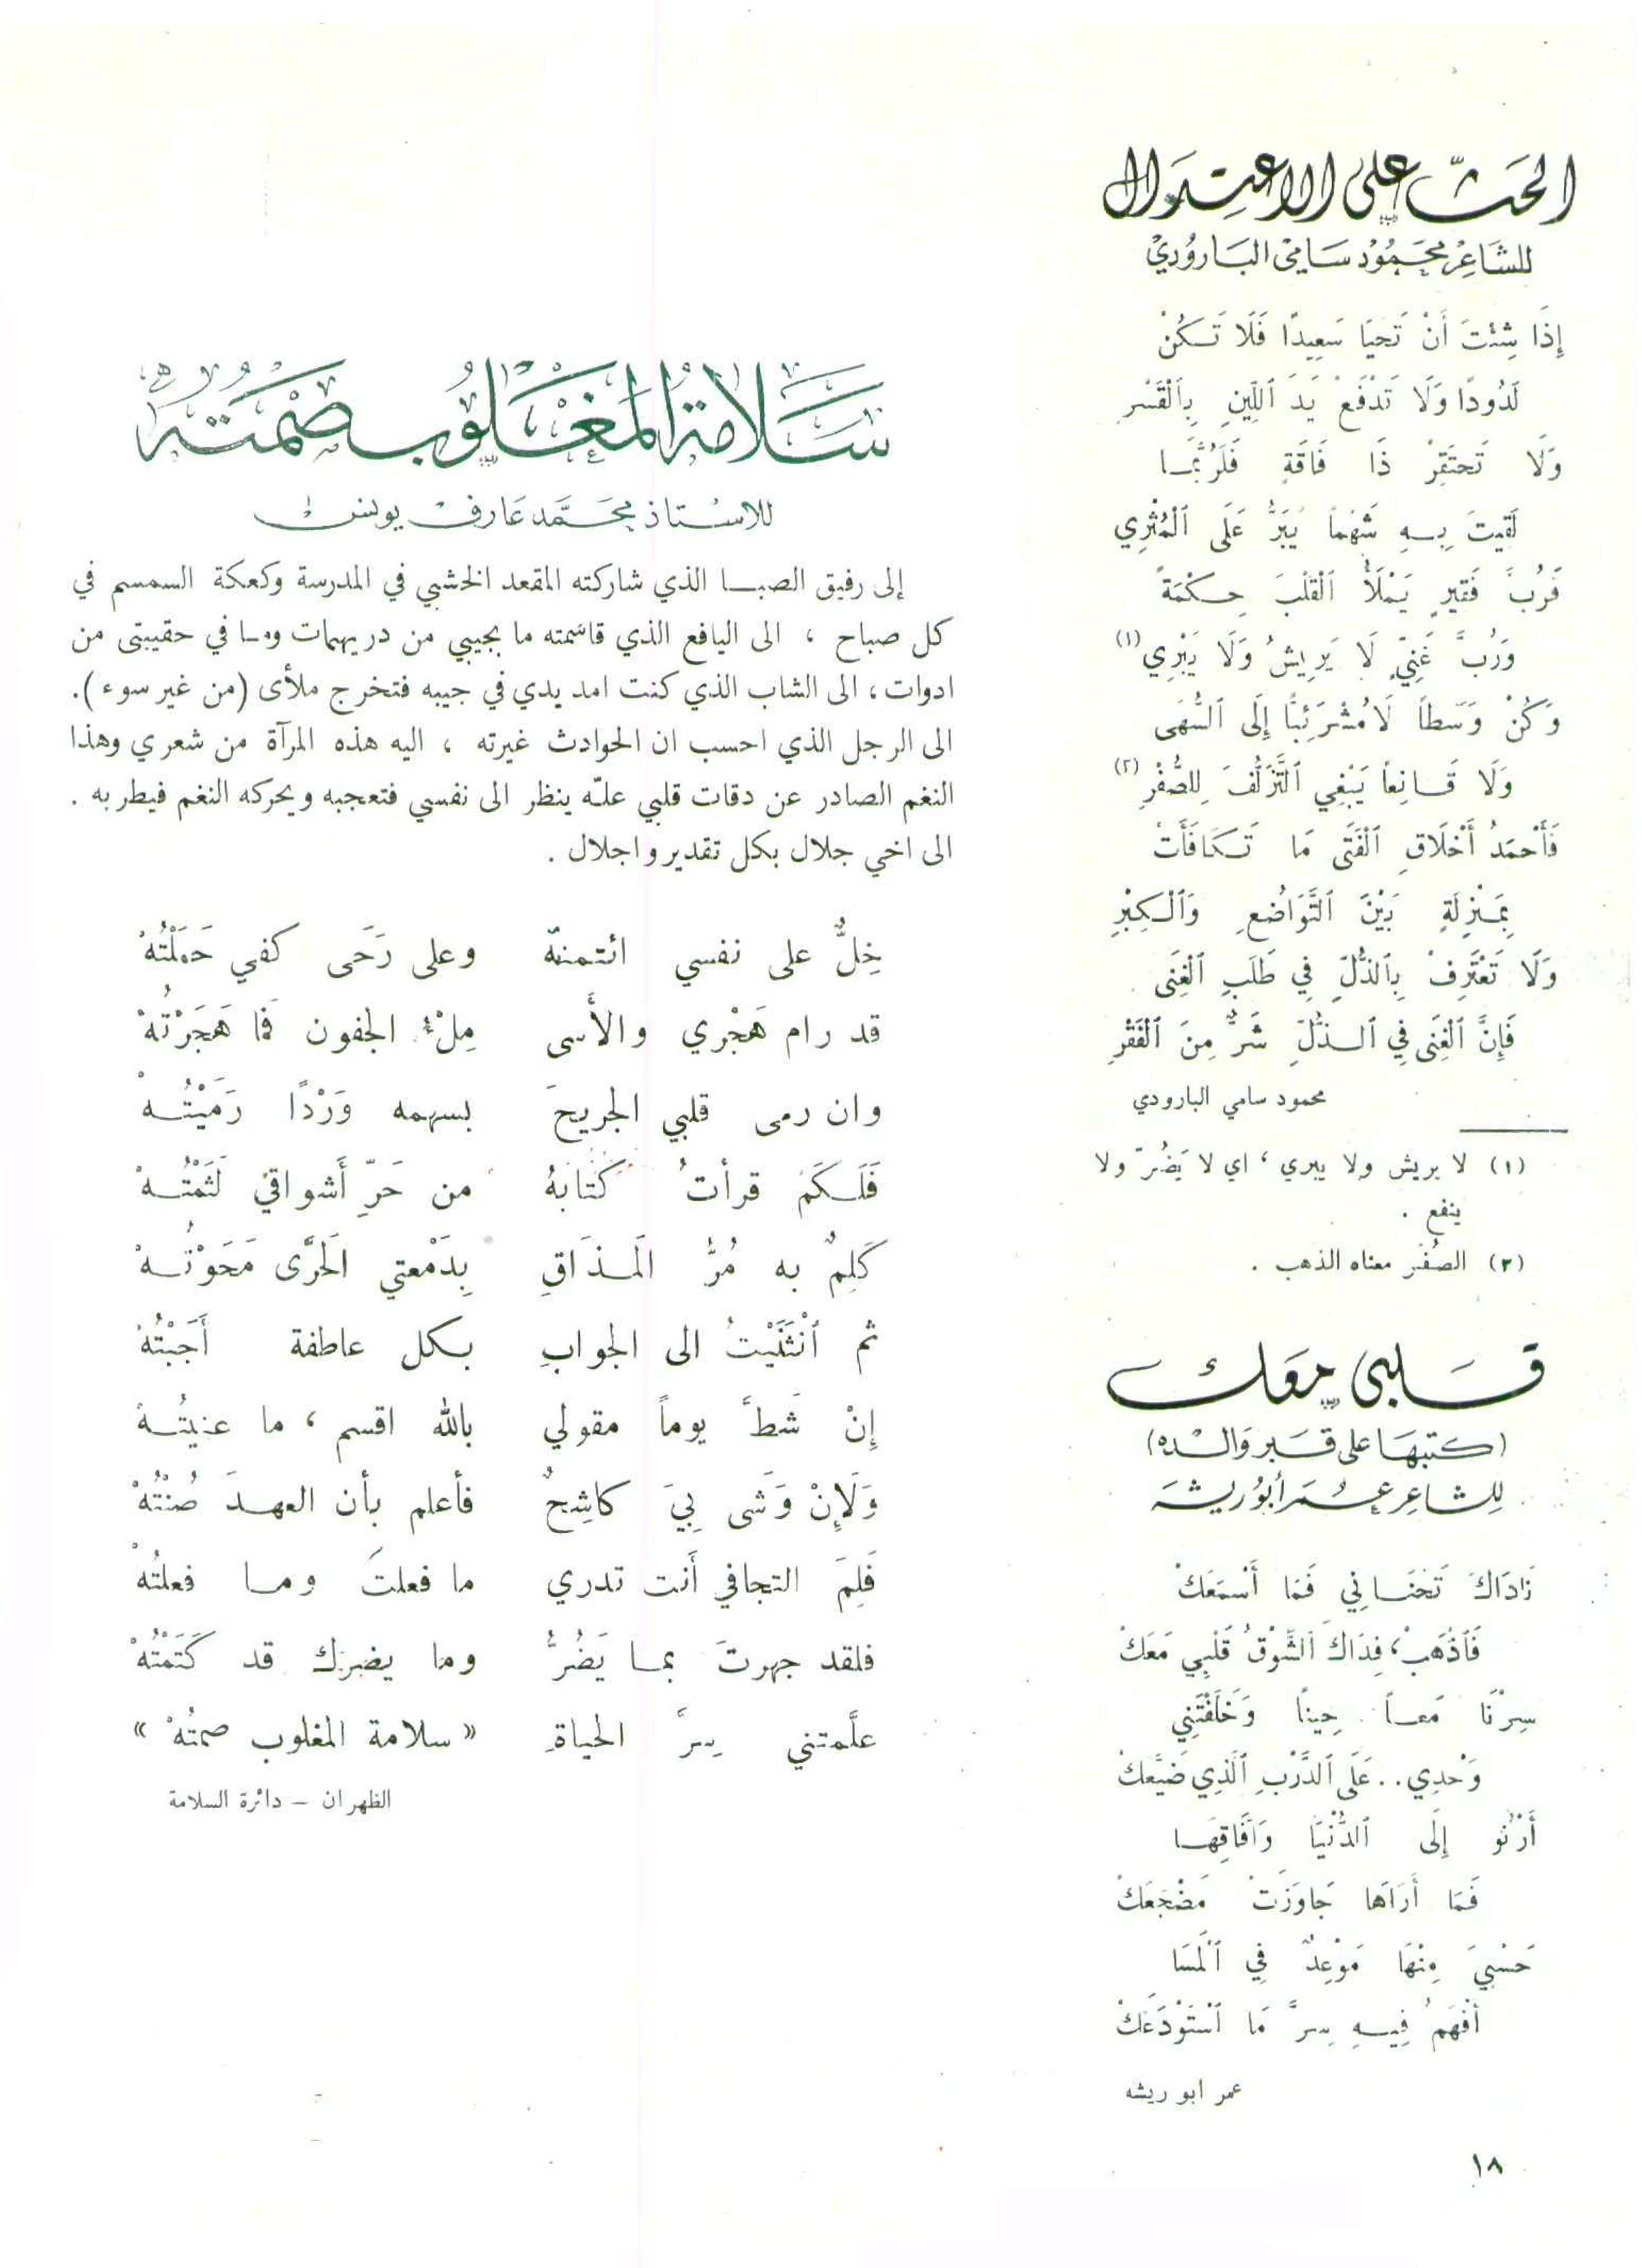 الحَثّ على الاعتِدَال
للشَاعِرْ محَمُوُد سَامِي البَارُودِيْ
إِذَا شِئْتَ أَنْ تَحْيَا سَعِيدًا فَلَا تَكُنْ
لَدُودًا وَلَا تَدْفَعْ يَدَ ٱللِّينِ بِٱلْقَسْرِ
وَلَا تَحْتَقِرْ ذَا فَاقَةٍ فَلَرُبَّمَا
لَقِيتَ بِهِ شَهْمًا يُبِرُّ عَلَى ٱلْمُثْرِي
فَرُبَّ فَقِيرٍ يَمْلَأُ ٱلْقَلْبَ حِكْمَةً
وَرُبَّ غَنِيٍّ لَا يَرِيشُ وَلَا يَبْرِي (١)
وَكُنْ وَسَطاً لَا مُشْرَئِبًّا إِلَى ٱلسُّهَى
وَلَا قَانِعاً يَبْغِي ٱلتَّزَلُّفَ لِلصُّفْرِ (٢)
فَأَحْمَدُ أَخْلَاقِ ٱلْفَتَى مَا تَكَافَأَتْ
بِمَنْزِلَةٍ بَيْنَ ٱلتَّوَاضُعِ وَٱلْكِبْرِ
وَلَا تَعْتَرِفْ بِٱلذُّلِّ فِي طَلَبِ ٱلْغِنَى
فَإِنَّ ٱلْغِنَى فِي ٱلذُّلِّ شَرٌّ مِنَ ٱلْفَقْرِ
محمود سامي البارودي
(١) لا يريش ولا يبري ، اي لا يَضُرّ ولا
ينفع .
(٢) الصُفْر معناه الذهب .
قَلبي مَعَك
(كتبهَا على قَبر وَالده)
لِلشاعِر عُمَر أبوُ ريشَه
نَادَاكَ تَحْنَانِي فَمَا أَسْمَعَكْ
فَٱذْهَبْ، فِدَاكَ ٱلشَّوْقُ قَلْبِي مَعَكْ
سِرْنَا مَعاً حِيناً وَخَلَّفْتَنِي
وَحْدِي.. عَلَى ٱلدَّرْبِ ٱلَّذِي ضَيَّعَكْ
أَرْنُو إِلَى ٱلدُّنْيَا وَآفَاقِهَا
فَمَا أَرَاهَا جَاوَزَتْ مَضْجَعَكْ
حَسْبِيَ مِنْهَا مَوْعِدٌ فِي ٱلْمَسَا
أَفْهَمُ فِيهِ سِرَّ مَا ٱسْتَوْدَعَكْ
عمر ابو ريشه
سَلامَةُ المَغْلُوُب صَمْتُهُ
للاسْتاذ محَمَّد عَارف يونس
إلى رفيق الصبا الذي شاركته المقعد الخشبي في المدرسة وكعكة السمسم في
كل صباح ، الى اليافع الذي قاسمته ما بجيبي من دريهمات وما في حقيبتى من
ادوات ، الى الشاب الذي كنت امد يدي في جيبه فتخرج ملأى (من غير سوء).
الى الرجل الذي احسب ان الحوادث غيرته ، اليه هذه المرآة من شعري وهذا
النغم الصادر عن دقات قلبي علّه ينظر الى نفسي فتعجبه ويحركه النغم فيطربه .
الى اخي جلال بكل تقدير واجلال .
خِلٌّ على نفسي ائتمنتهُ وعلى رَحَى كفي حَمَلْتُهُ
قد رام هَجْري والأَسى مِلْءُ الجفون فما هَجَرْتُهْ
وان رمى قلبي الجريحَ بسهمه وَرْدًا رَمَيْتُهْ
فَلَكَمْ قرأتُ كتَابَهُ من حَرِّ أَشواقيْ لَثَمْتُهْ
كَلِمٌ به مُرُّ المَذَاقِ بِدَمْعتي الَحرَّى مَحَوْتُهْ
ثم ٱنْثَنَيْتُ الى الجوابِ بكل عاطفة أَجَبْتُهْ
إِنْ شَطَّ يوماً مقولي بالله اقسم ، ما عنيتُهْ
وَلَإِنْ وَشَى بِيَ كاشِحٌ فأعلم بأن العهدَ صُنْتُهْ
فَلِمَ التجافي أَنت تدري ما فعلتَ وما فعلتُهْ
فلقد جهرتَ بما يَضُرُّ وما يضرك قد كَتَمْتُهْ
علَّمتني سِرَّ الحياةِ « سلامة المغلوب صمتُهْ »
الظهران – دائرة السلامة
١٨